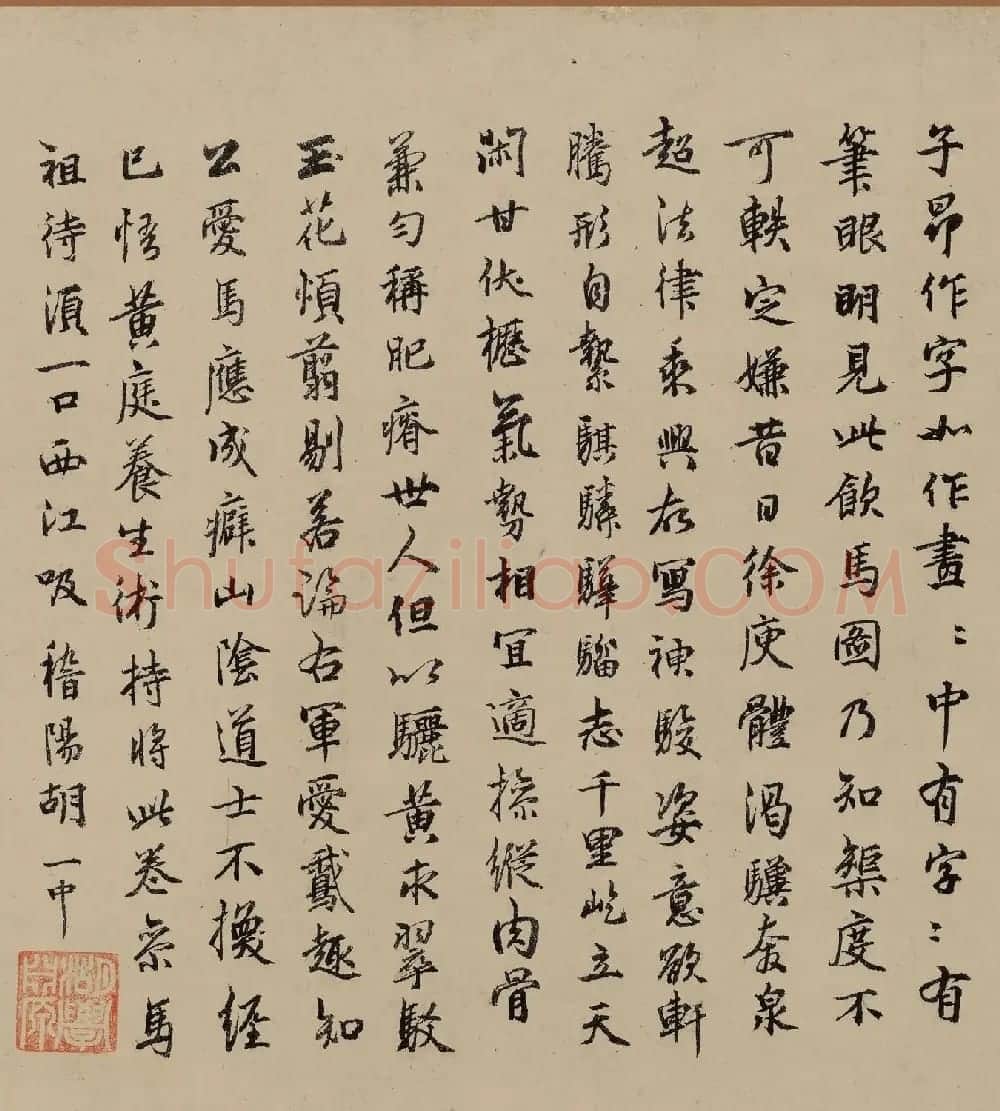 子昂作字如作畫〻中有字〻有
筆眼明見此飲馬圖乃知榘度不
可軼定嫌昔日徐庾體渴驥奔泉
超法律乘興寫神駿姿意欲軒
騰形自縶騏驎驊騮志千里屹立天
閑甘伏櫪氣勢相宜適操縱肉骨
兼勻稱肥瘠世人但以驪黃求翠駮
玉花煩翦剔若論右軍愛鵞趣知
公愛馬應成癖山陰道士不換經
已悟黃庭養生術持將此卷參馬
祖待須一口西江吸稽陽胡一中
Shufaziliao.COM